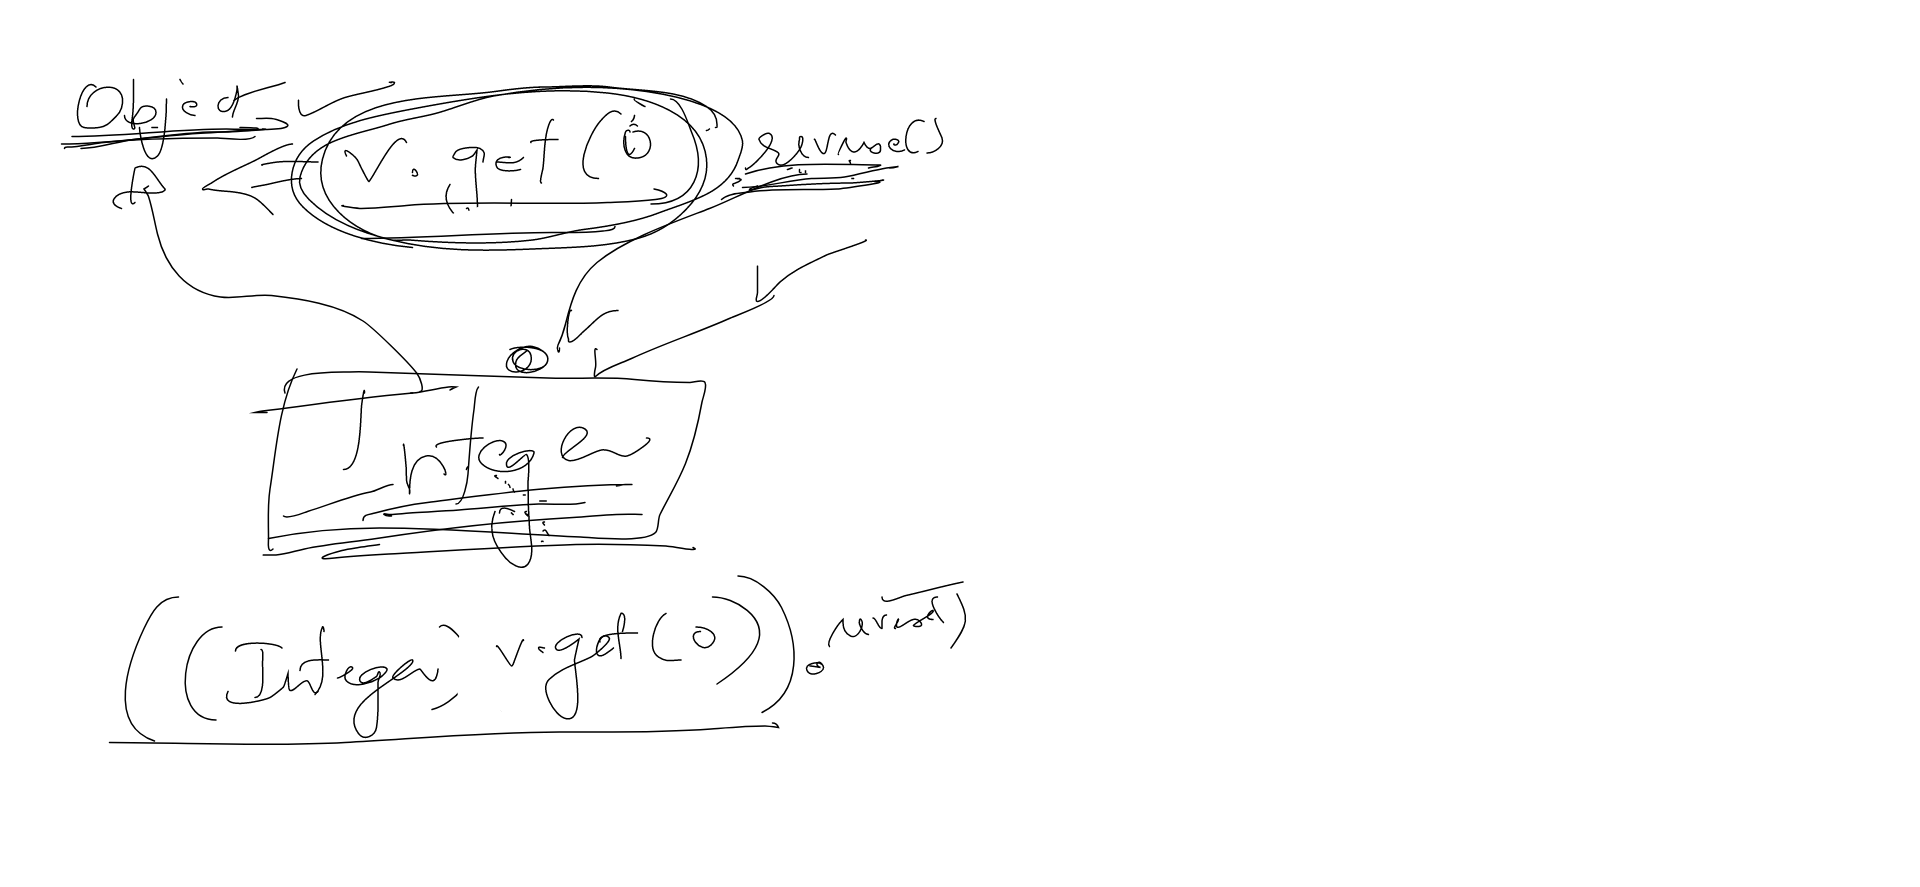 Object v.get(0 reverse()
Integer
((Integer) v.get(0)).reverse()